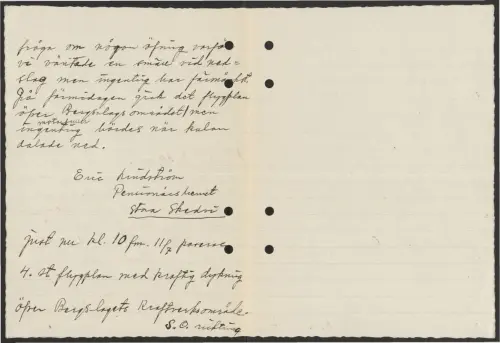 fråga om någon öfning varför
vi väntade en smäll vid ned=
slag men ingenting har förmärkts.
På förmidagen gick det flygplan
öfver Bergslagsområdet men
ingenting hördes när kulan
dalade ned.
Eric Lindström
Pensionärshemet
Stora Skedvi
just nu kl. 10 fm. 11/7 passerar
4. st flygplan med kraftig dykning
öfver Bergslagets Kraftverksområde.
S.O. riktning